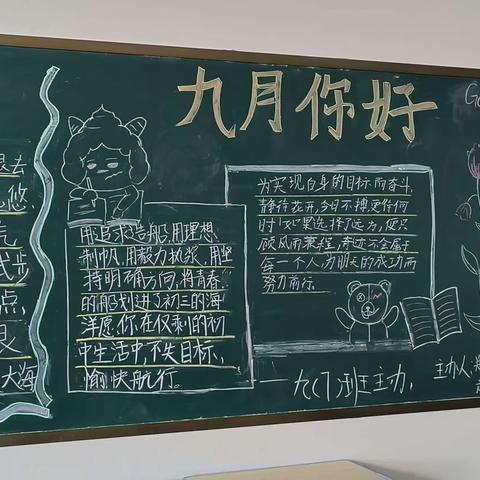 九月你好
退去
悠,
步
点,
大海
用追求造船,用理想
制帆,用毅力执桨,用坚
持明确方向,将青春
的船划进初三的海
洋愿你,在仅剩的初
中生活中,不失目标,
愉快航行。
为实现自身的目标而奋斗,
静待花开,今日不搏更待何
时!如果选择了远方,便只
顾风雨兼程,奇迹不会属于
每一个人,为明天的成功而
努力前行。
九(7)班主办,
主办人: